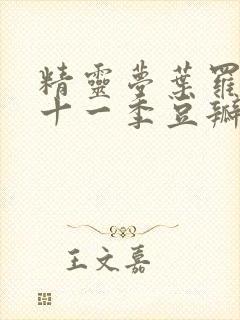 精靈夢葉羅
十一季豆瓣
王文嘉